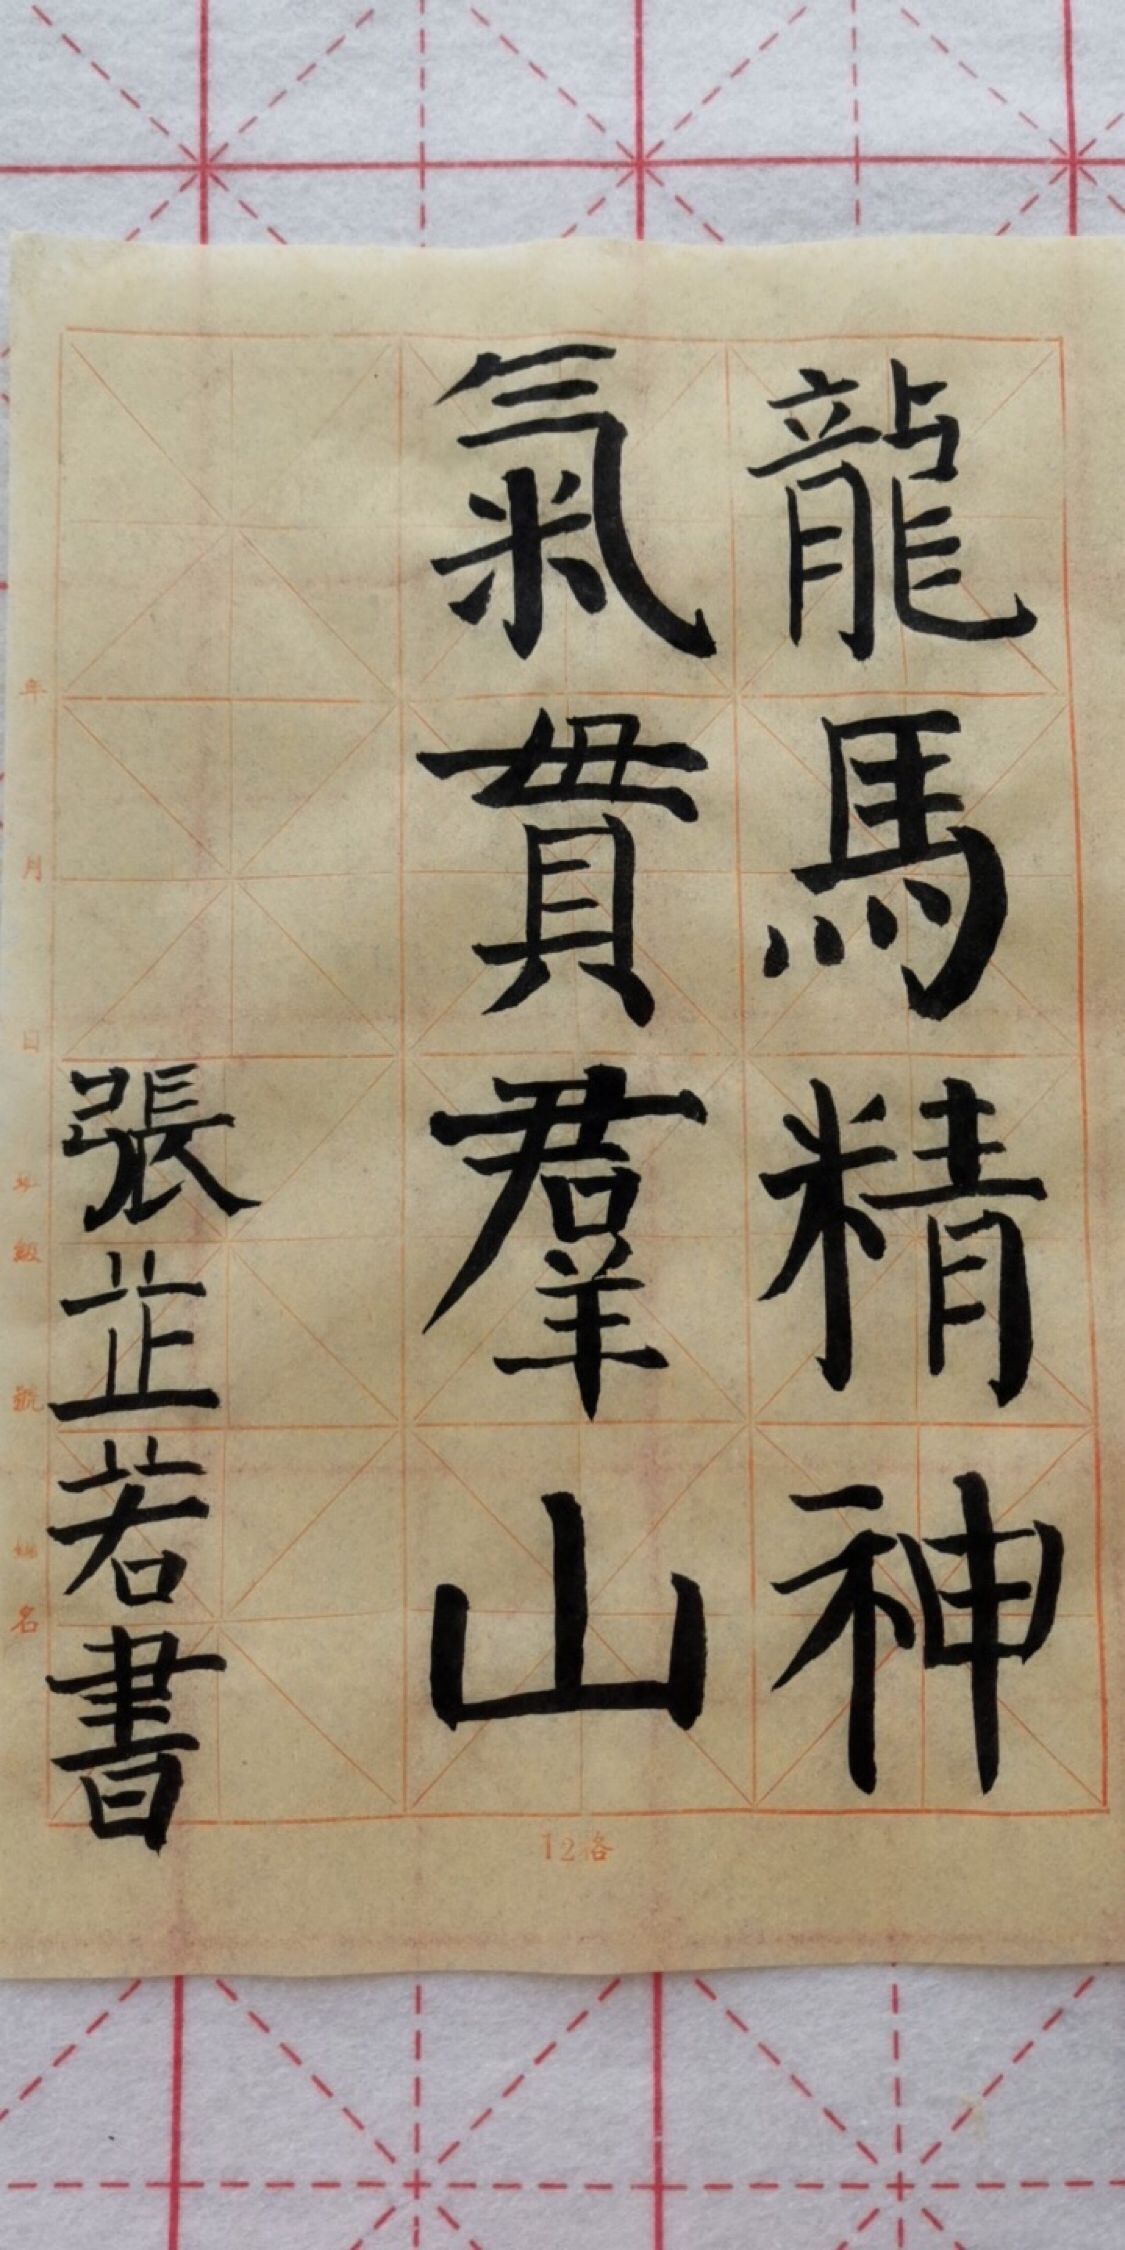 龍馬精神
氣貫羣山
張芷若書
年 月 日
級 號
名
12格